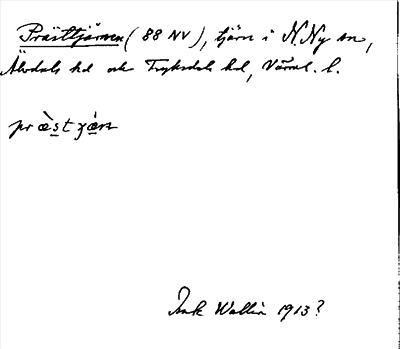 Prästtjärnen (88 NV), tjärn i N. Ny sn,
Älvdals hd och Fryksdals hd, Värml. l.
præ̀stɣæ̀rn
Wallin 1913?